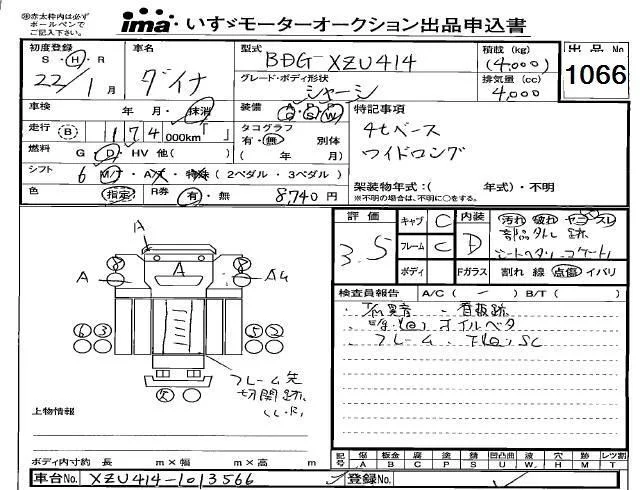 ㊟赤太枠内は必ず
ボールペンで
ご記入下さい。
ima いすゞモーターオークション出品申込書
初度登録 車名 型式 積載 (kg) 出品No
S・H・R ダイナ BDG-XZU414 (4,000) 1066
22/1月 グレード・ボディ形状 排気量 (cc)
シャーシ 4,000
車検 年 月・抹消 装備 A P P 特記事項
G S W
走行 B 174 000km「 」 タコグラフ 4tベース
有・無 別体 ワイドロング
燃料 G・D・HV 他( ) ( 年 月)
シフト 6 M/T・A/T・特殊 (2ペダル・3ペダル) 架装物年式:( 年式)・不明
色 指定 R券 有・無 8,740円 ※不明の場合は、不明に○をする。
評価 キャブ C 内装 汚れ 破れ ヤコゲ スレ
3.5 フレーム C D 部品外し跡
ボディ Fガラス 割れ 線 点傷 イバリ
検査員報告 A/C( - ) B/T( )
看板跡
オイルベタ
フレーム、下回りSC
A
8 8
A A A4
6 3 5 2
フレーム先
切開跡
(L.R)
上物情報
ボディ内寸約 長 m×幅 m×高 m
記号 傷 板金 腐 塗 錆 凹凸曲 波 穴 跡 レツ割
A B C P S U W H M T
車台No. XZU414-1013566 登録No.